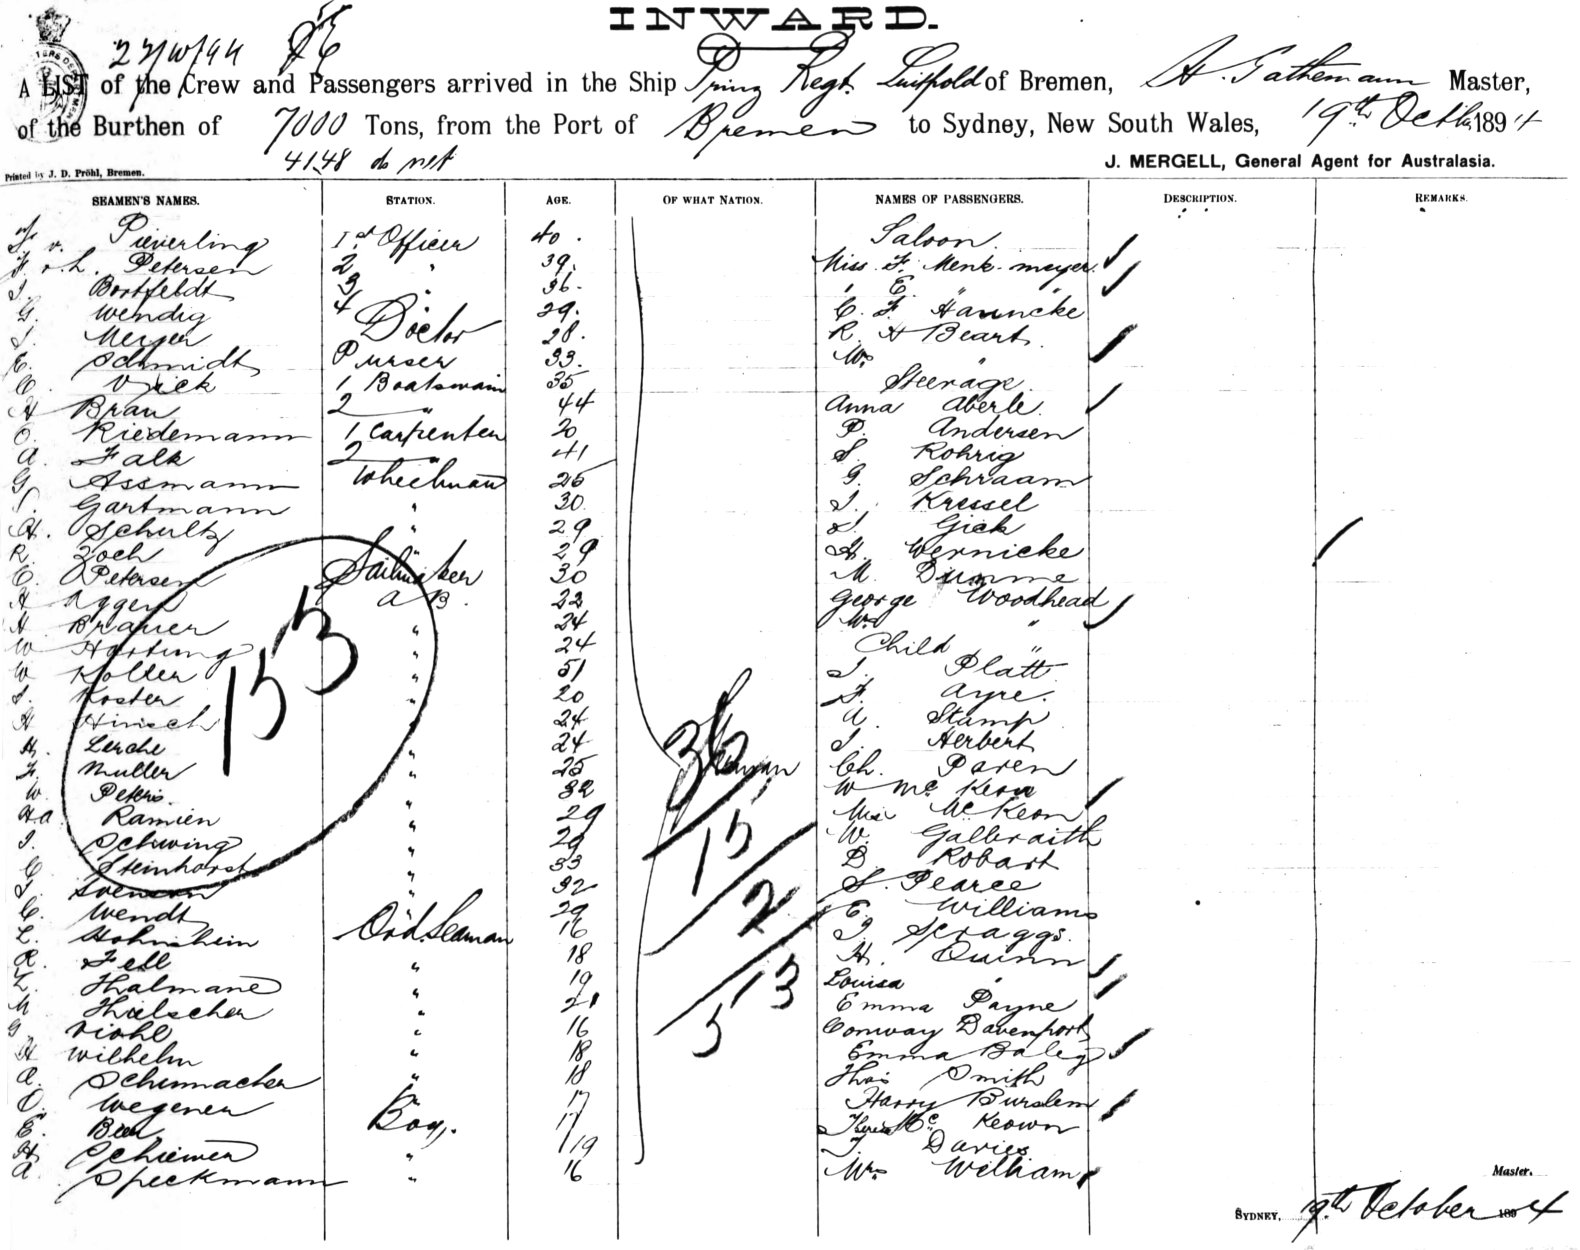 INWARD.
22/10/94
A LIST of the Crew and Passengers arrived in the Ship Prinz Regt. Luitpold of Bremen, H. Gathemann Master,
of the Burthen of 7000 Tons, from the Port of Bremen to Sydney, New South Wales, 19th Octbr 1894
4148 do net
J. MERGELL, General Agent for Australasia.
Printed by J. D. Pröhl, Bremen.
SEAMEN'S NAMES. STATION. AGE. OF WHAT NATION. NAMES OF PASSENGERS. DESCRIPTION. REMARKS.
v. Pieverling 1st Officer 40. Saloon.
Petersen 2 " 39. Miss F. Menk-meyer
Bortfeldt 3 " 36. " E. " "
G. Wendig 4 29. C. F. Hanncke
J. Meyer Doctor 28. R. H Beart.
E. Schmidt Purser 33. Mrs "
C. Vick 1 Boatswain 35 Steerage.
H Brau 2 " 44 Anna Aberle.
O. Riedemann 1 Carpenter 20 P. Andersen
A. Falk 2 " 41 S. Rohrig
G. Assmann Wheelman 25 G. Schraam
Gartmann " 30. J. Kressel
H. Schultz " 29 Gick
R. Zoch " 29 H. Wernicke
C. Petersen Sailmaker 30 M.
H Aggen A B. 22 George Woodhead
H. Brauer " 24 Mrs "
W Hartung " 24 Child "
W Kolter " 51 J. Platt
J. Koster " 20 F. Ayre.
H Hinsch " 24 A. Stamp
H. Lerche " 24 J. Herbert
F. Muller " 25 German Ch. Paren
W. Peters. " 32 W McKeon
H.a Ramien " 29 Mrs McKeon
J. Schwing " 29 W. Galbraith
C. Steinhorst " 33 B Robart
J. Svensen " 32 S. Pearce
C. Wendt " 29 E. Williams
L. Hohnshein Ord. Seaman 16 J. Scraggs.
R. Fell " 18 H. Quinn
Z. Thalmane " 19 Louisa "
M Hielscher " 21 Emma Payne
G. Viohl " 16 Conway Davenport
H Wilhelm " 18 Emma Baley
A. Schumacher " 18 Thos Smith
O. Wegener Boy. 17 Harry Burslem
E. Beer 17 McKeown
H. Schiemen " 19 J. Davies
A Speckmann " 16 Mrs William
153
36
15
2
53
Master.
SYDNEY, 19th October 1894